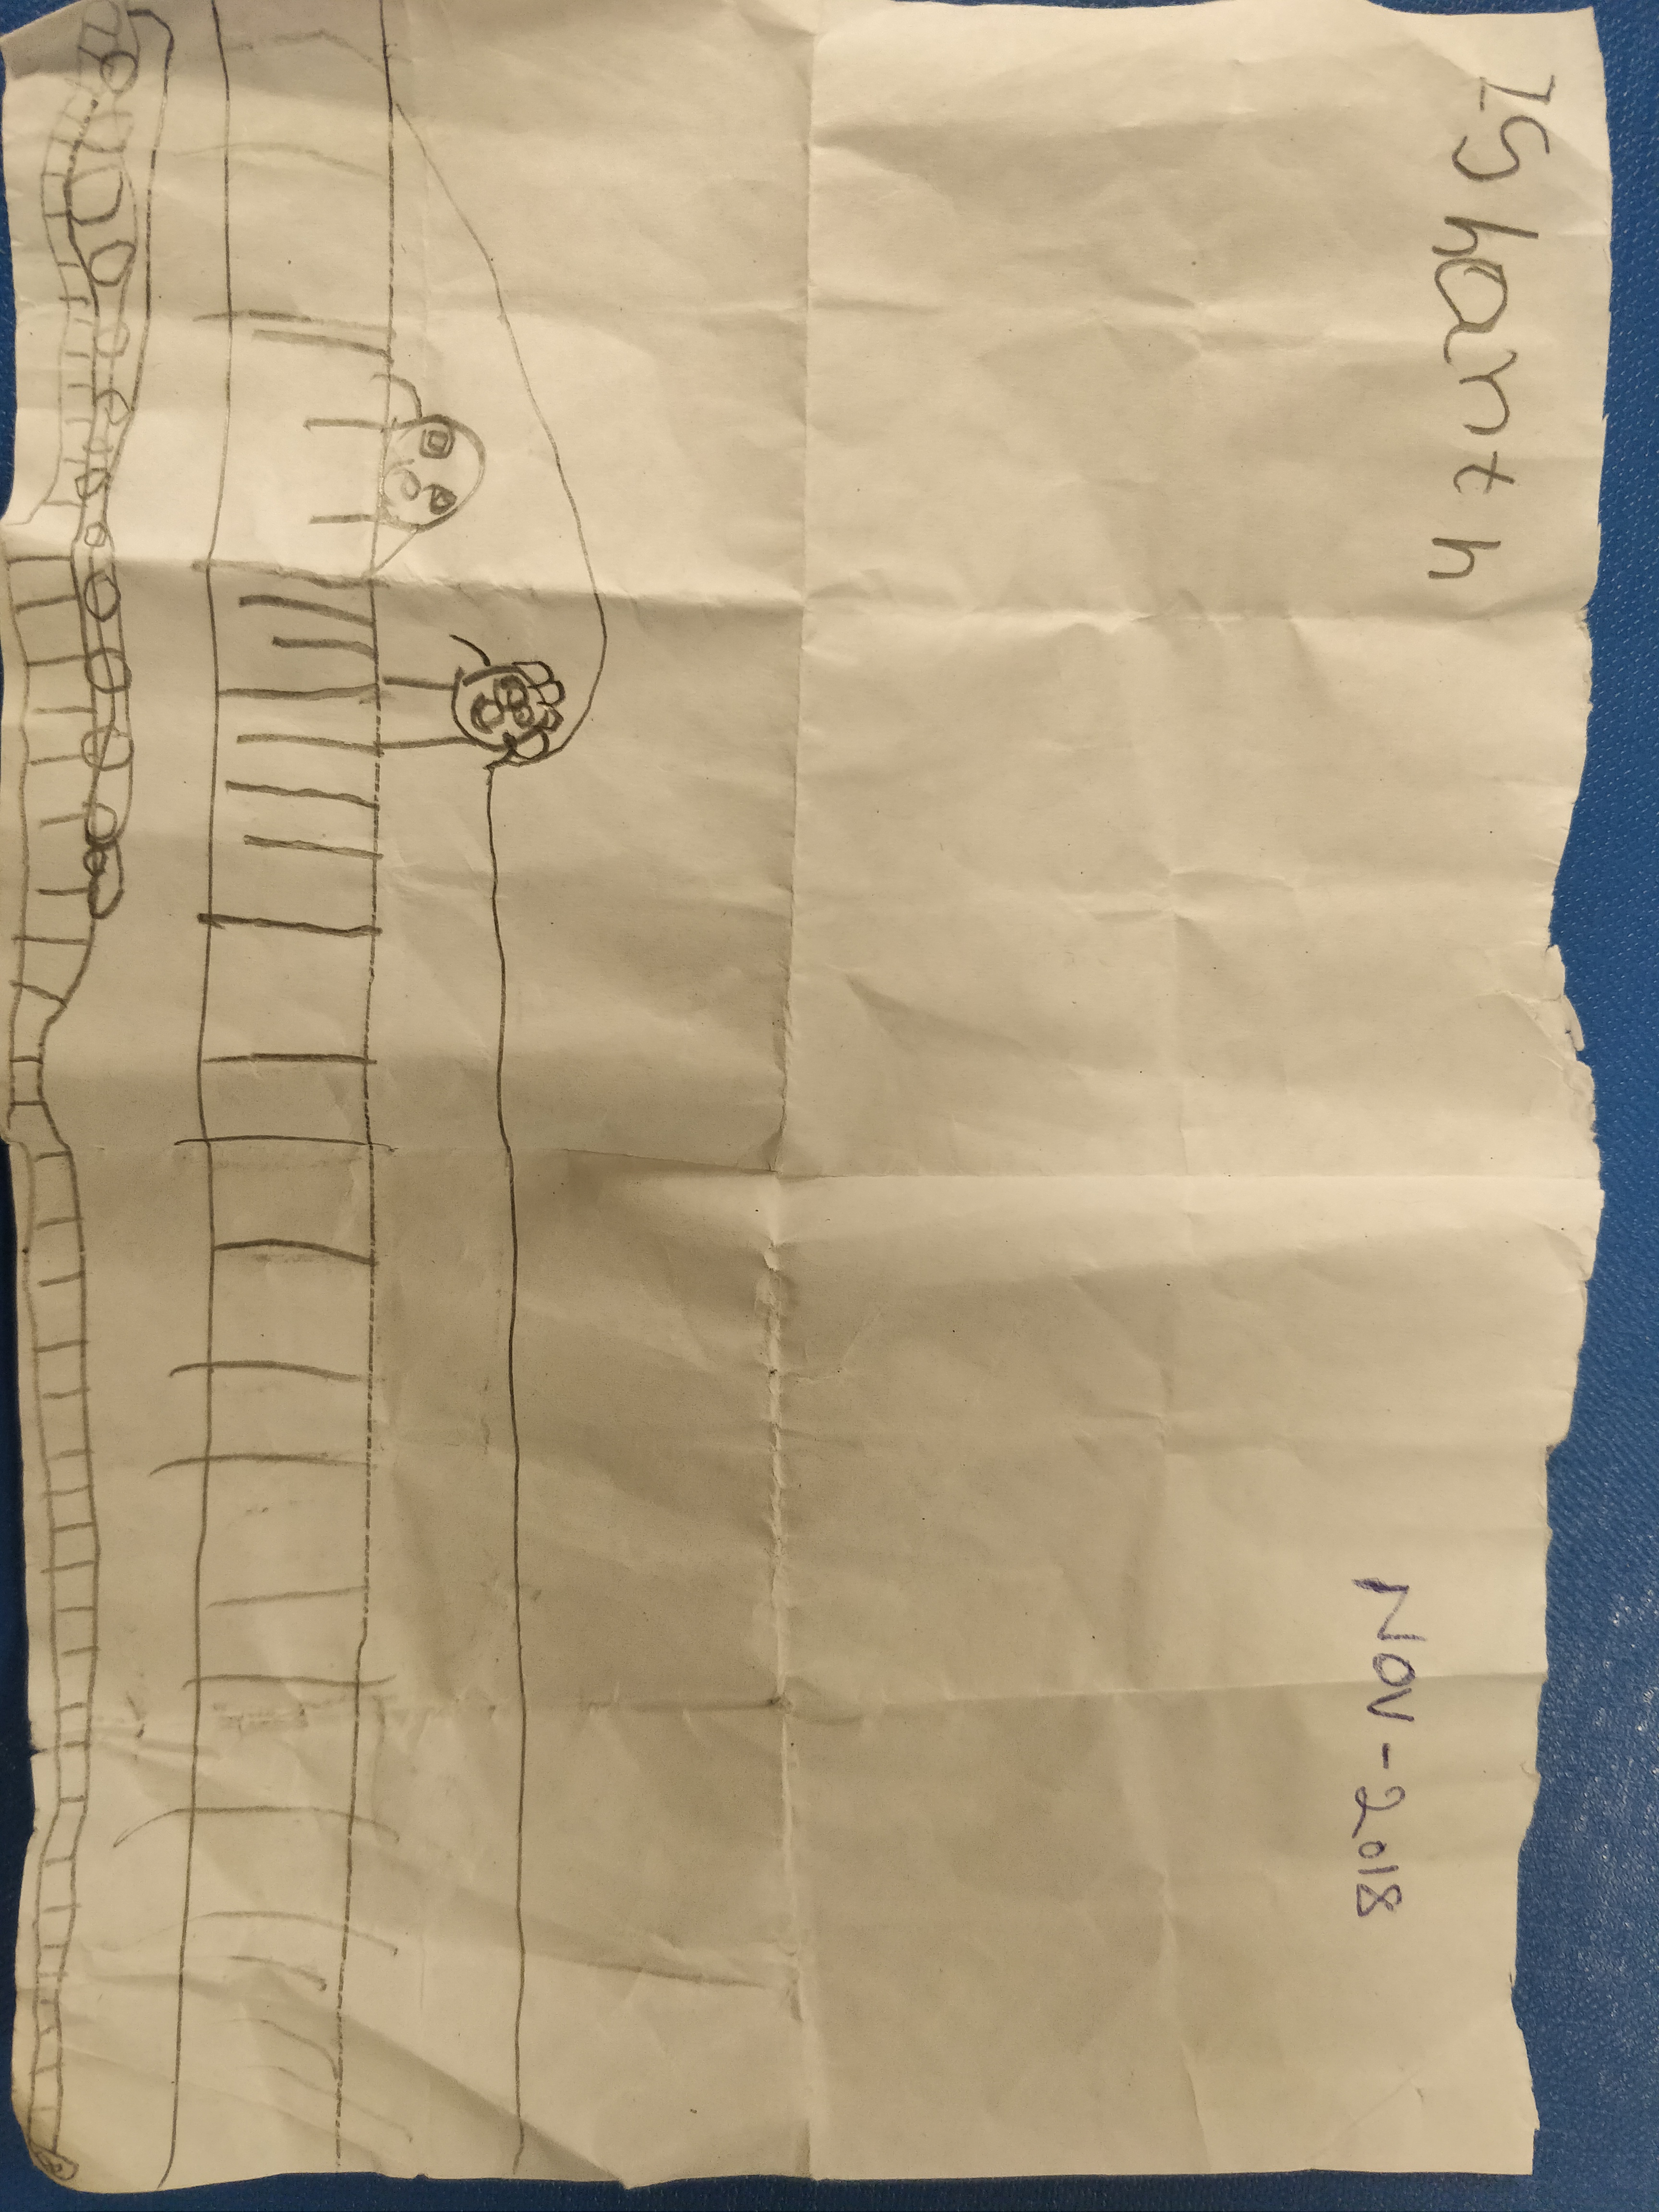 IShanth
NOV-2018